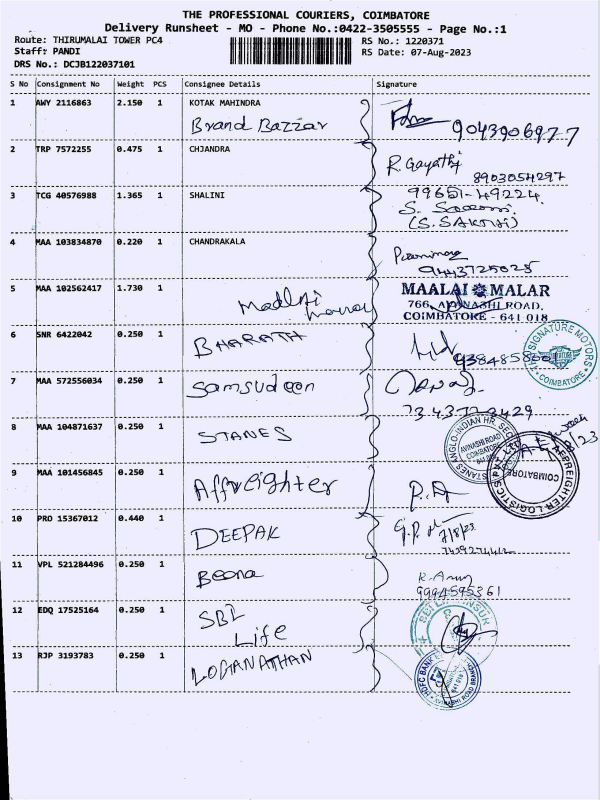 THE PROFESSIONAL COURIERS, COIMBATORE
Delivery Runsheet - MO - Phone No.:0422-3505555 - Page No.:1
Route: THIRUMALAI TOWER PC4
RS No.: 1220371
Staff: PANDI
RS Date: 07-Aug-2023
DRS No.: DCJB122037101
S No Consignment No Weight PCS Consignee Details Signature
1 AWY 2116863 2.150 1 KOTAK MAHINDRA
Brand Bazzar 9043906977
2 TRP 7572255 0.475 1 CHJANDRA
R. Gayathi
8903054297
3 TCG 40576988 1.365 1 SHALINI 99651-49224
(S. SAKTHI)
4 MAA 103834870 0.220 1 CHANDRAKALA
9443725025
5 MAA 102562417 1.730 1 MAALAI MALAR
766, AVINASHI ROAD,
COIMBATORE - 641 018
6 SNR 6422042 0.250 1 BHARATH
SIGNATURE MOTORS
COIMBATORE
7 MAA 572556034 0.250 1 Samsudeen
8 MAA 104871637 0.250 1 STANES
STANES ANGLO-INDIAN HR SEC
AVINASHI ROAD
COIMBATORE
9 MAA 101456845 0.250 1 Affreighter
AFFREIGHTER LOGISTICS PVT LTD
COIMBATORE
10 PRO 15367012 0.440 1 DEEPAK
7/8/23
11 VPL 521284496 0.250 1 Beena
9994595361
12 EDQ 17525164 0.250 1 SBI
Life
13 RJP 3193783 0.250 1 LOGANATHAN
HDFC BANK